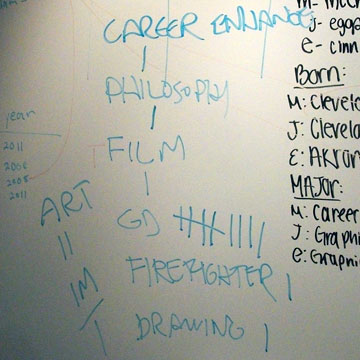 CAREER ENHANCE
PHILOSOPHY
FILM
ART
GD
IM
FIREFIGHTER
DRAWING
year
2011
2006
2008
2011
J- egg
e- cinn
Born:
M: Clevel
J: Clevela
E: Akron
MAJOR:
M: Career
J: Graphi
e: Graphi